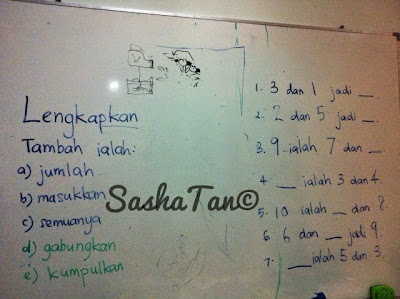 Lengkapkan
Tambah ialah:
a) jumlah.
b) masukkan
c) semuanya
d) gabungkan
e) kumpulkan
1. 3 dan 1 jadi __.
2. 2 dan 5 jadi __.
3. 9 ialah 7 dan __.
4. __ ialah 3 dan 4.
5. 10 ialah __ dan 8.
6. 6 dan __ jadi 9.
7. __ ialah 5 dan 3.
SashaTan©